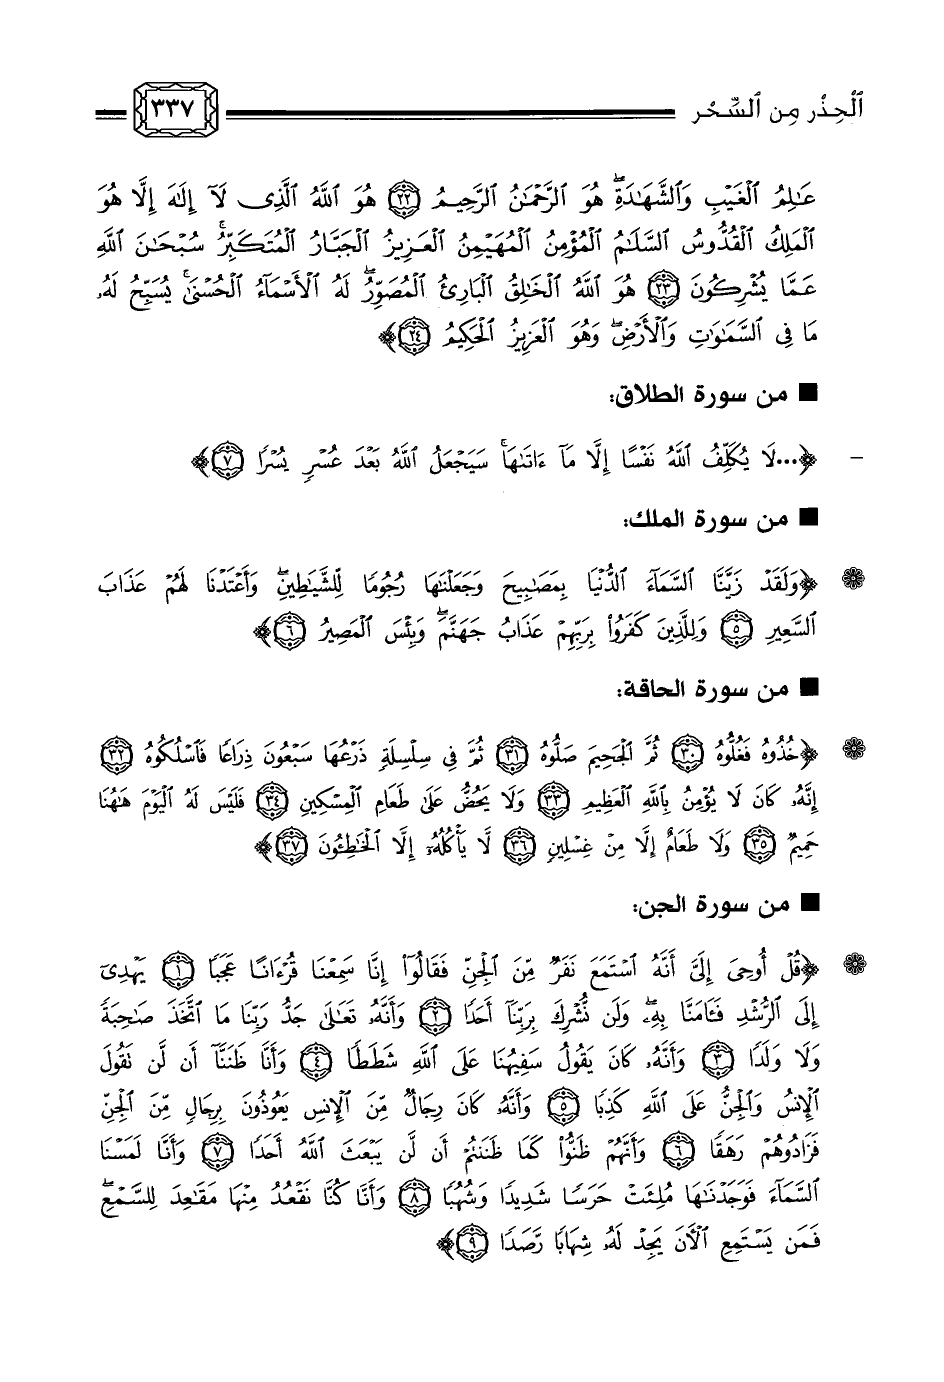 ٱلْحِذْر مِن ٱلسِّحْر ٣٣٧
عَـٰلِمُ ٱلْغَيْبِ وَٱلشَّهَـٰدَةِۖ هُوَ ٱلرَّحْمَـٰنُ ٱلرَّحِيمُ ﴿٢٢﴾ هُوَ ٱللَّهُ ٱلَّذِى لَآ إِلَـٰهَ إِلَّا هُوَ
ٱلْمَلِكُ ٱلْقُدُّوسُ ٱلسَّلَـٰمُ ٱلْمُؤْمِنُ ٱلْمُهَيْمِنُ ٱلْعَزِيزُ ٱلْجَبَّارُ ٱلْمُتَكَبِّرُۚ سُبْحَـٰنَ ٱللَّهِ
عَمَّا يُشْرِكُونَ ﴿٢٣﴾ هُوَ ٱللَّهُ ٱلْخَـٰلِقُ ٱلْبَارِئُ ٱلْمُصَوِّرُۖ لَهُ ٱلْأَسْمَآءُ ٱلْحُسْنَىٰۚ يُسَبِّحُ لَهُۥ
مَا فِى ٱلسَّمَـٰوَٰتِ وَٱلْأَرْضِۖ وَهُوَ ٱلْعَزِيزُ ٱلْحَكِيمُ ﴿٢٤﴾﴾
■ من سورة الطلاق:
– ﴿...لَا يُكَلِّفُ ٱللَّهُ نَفْسًا إِلَّا مَآ ءَاتَىٰهَاۚ سَيَجْعَلُ ٱللَّهُ بَعْدَ عُسْرٍ يُسْرًا ﴿٧﴾﴾
■ من سورة الملك:
❁ ﴿وَلَقَدْ زَيَّنَّا ٱلسَّمَآءَ ٱلدُّنْيَا بِمَصَـٰبِيحَ وَجَعَلْنَـٰهَا رُجُومًا لِّلشَّيَـٰطِينِۖ وَأَعْتَدْنَا لَهُمْ عَذَابَ
ٱلسَّعِيرِ ﴿٥﴾ وَلِلَّذِينَ كَفَرُوا۟ بِرَبِّهِمْ عَذَابُ جَهَنَّمَۖ وَبِئْسَ ٱلْمَصِيرُ ﴿٦﴾﴾
■ من سورة الحاقة:
❁ ﴿خُذُوهُ فَغُلُّوهُ ﴿٣٠﴾ ثُمَّ ٱلْجَحِيمَ صَلُّوهُ ﴿٣١﴾ ثُمَّ فِى سِلْسِلَةٍ ذَرْعُهَا سَبْعُونَ ذِرَاعًا فَٱسْلُكُوهُ ﴿٣٢﴾
إِنَّهُۥ كَانَ لَا يُؤْمِنُ بِٱللَّهِ ٱلْعَظِيمِ ﴿٣٣﴾ وَلَا يَحُضُّ عَلَىٰ طَعَامِ ٱلْمِسْكِينِ ﴿٣٤﴾ فَلَيْسَ لَهُ ٱلْيَوْمَ هَـٰهُنَا
حَمِيمٌ ﴿٣٥﴾ وَلَا طَعَامٌ إِلَّا مِنْ غِسْلِينٍ ﴿٣٦﴾ لَّا يَأْكُلُهُۥٓ إِلَّا ٱلْخَـٰطِـُٔونَ ﴿٣٧﴾﴾
■ من سورة الجن:
❁ ﴿قُلْ أُوحِىَ إِلَىَّ أَنَّهُ ٱسْتَمَعَ نَفَرٌ مِّنَ ٱلْجِنِّ فَقَالُوٓا۟ إِنَّا سَمِعْنَا قُرْءَانًا عَجَبًا ﴿١﴾ يَهْدِىٓ
إِلَى ٱلرُّشْدِ فَـَٔامَنَّا بِهِۦۖ وَلَن نُّشْرِكَ بِرَبِّنَآ أَحَدًا ﴿٢﴾ وَأَنَّهُۥ تَعَـٰلَىٰ جَدُّ رَبِّنَا مَا ٱتَّخَذَ صَـٰحِبَةً
وَلَا وَلَدًا ﴿٣﴾ وَأَنَّهُۥ كَانَ يَقُولُ سَفِيهُنَا عَلَى ٱللَّهِ شَطَطًا ﴿٤﴾ وَأَنَّا ظَنَنَّآ أَن لَّن تَقُولَ
ٱلْإِنسُ وَٱلْجِنُّ عَلَى ٱللَّهِ كَذِبًا ﴿٥﴾ وَأَنَّهُۥ كَانَ رِجَالٌ مِّنَ ٱلْإِنسِ يَعُوذُونَ بِرِجَالٍ مِّنَ ٱلْجِنِّ
فَزَادُوهُمْ رَهَقًا ﴿٦﴾ وَأَنَّهُمْ ظَنُّوا۟ كَمَا ظَنَنتُمْ أَن لَّن يَبْعَثَ ٱللَّهُ أَحَدًا ﴿٧﴾ وَأَنَّا لَمَسْنَا
ٱلسَّمَآءَ فَوَجَدْنَـٰهَا مُلِئَتْ حَرَسًا شَدِيدًا وَشُهُبًا ﴿٨﴾ وَأَنَّا كُنَّا نَقْعُدُ مِنْهَا مَقَـٰعِدَ لِلسَّمْعِۖ
فَمَن يَسْتَمِعِ ٱلْـَٔانَ يَجِدْ لَهُۥ شِهَابًا رَّصَدًا ﴿٩﴾﴾